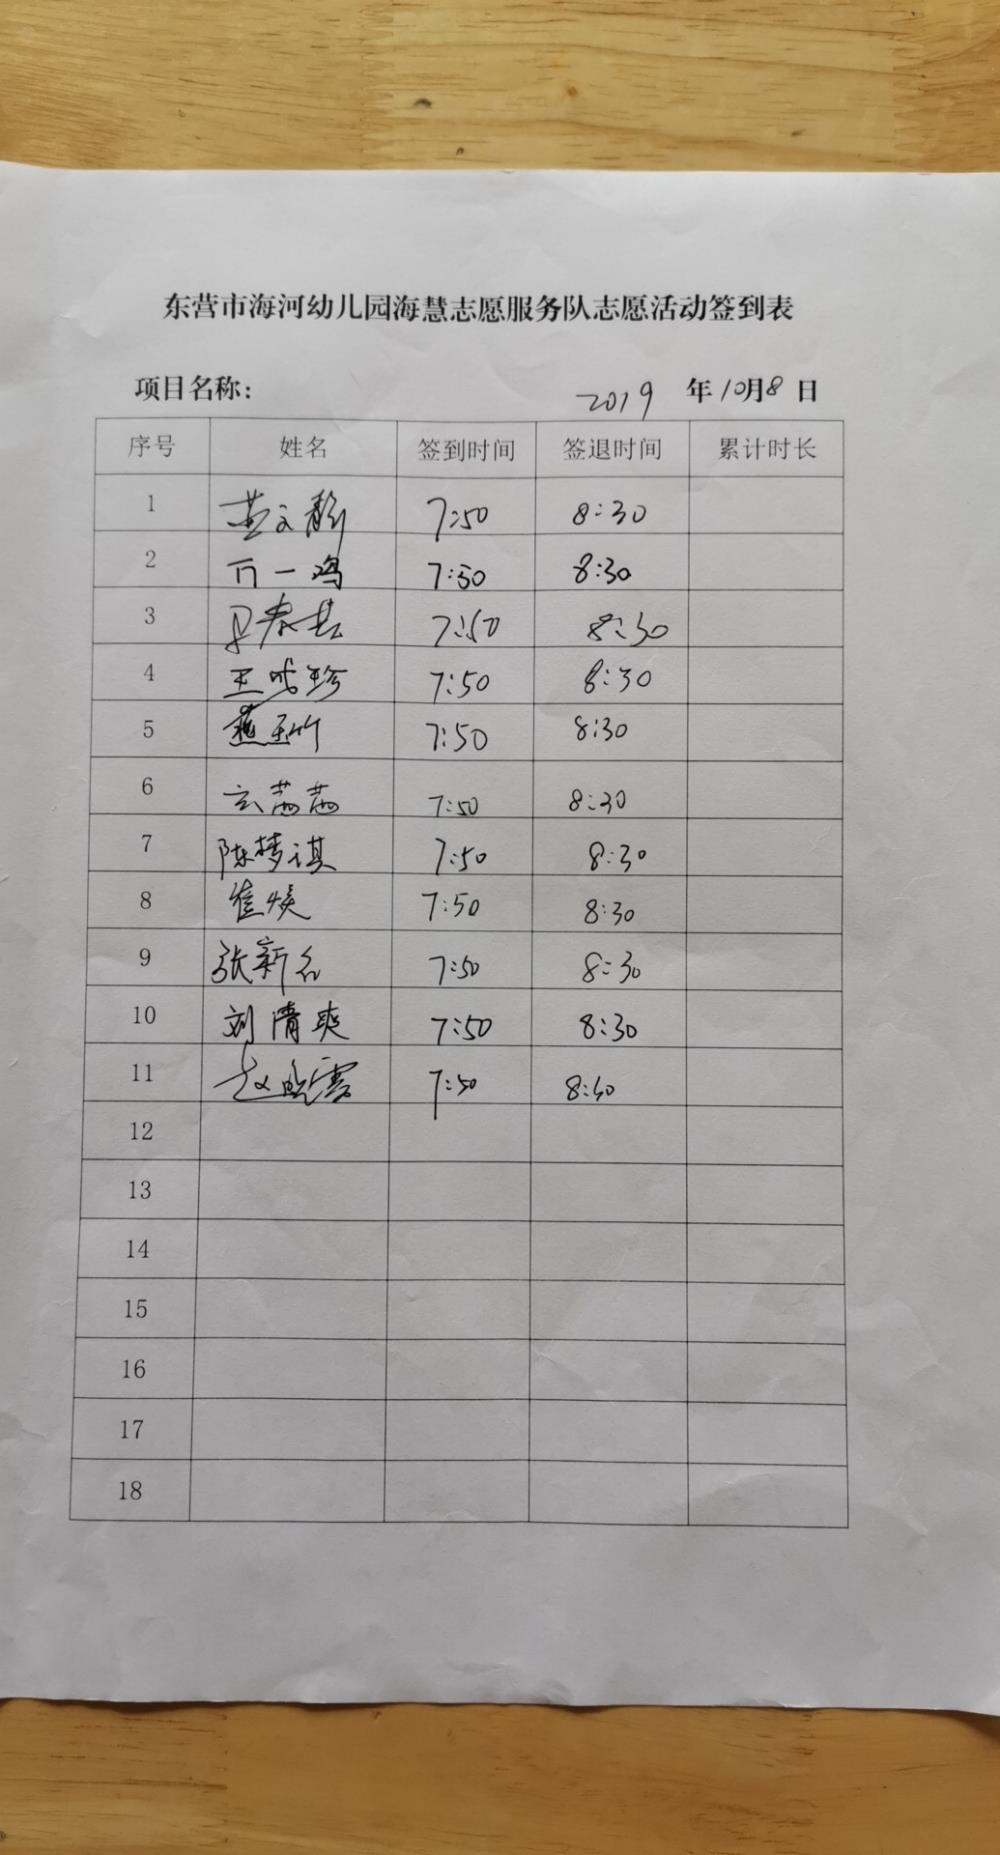 东营市海河幼儿园海慧志愿服务队志愿活动签到表
项目名称: 2019 年10月8日
序号 姓名 签到时间 签退时间 累计时长
1 黄文静 7:50 8:30
2 一鸣 7:50 8:30
3 7:50 8:30
4 王 珍 7:50 8:30
5 燕玉竹 7:50 8:30
6 云茜茜 7:50 8:30
7 陈梦琪 7:50 8:30
8 崔媛 7:50 8:30
9 张新名 7:50 8:30
10 刘清爽 7:50 8:30
11 赵晓雲 7:50 8:30
12
13
14
15
16
17
18